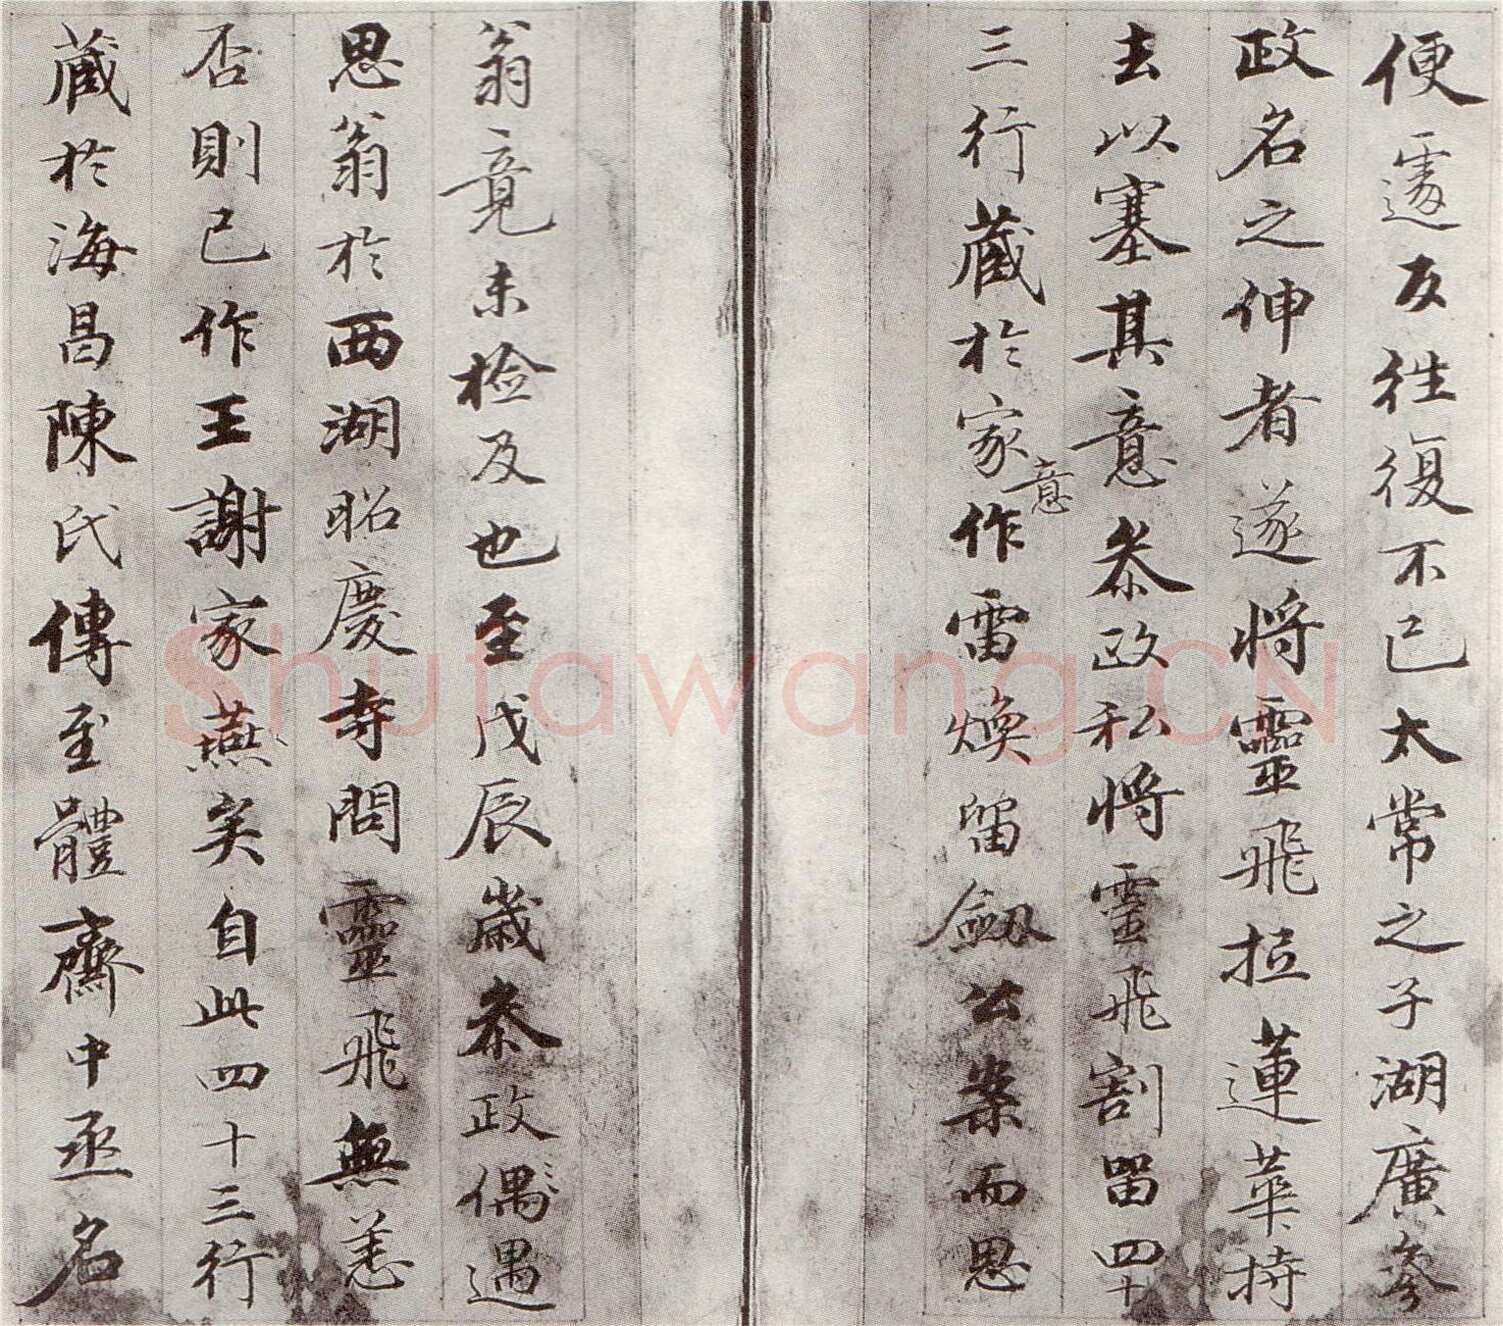 便遽反往復不已太常之子湖廣參
政名之伸者遂將靈飛拉蓮華持
去以塞其意叅政私將靈飛割留四十
三行藏於家意作雷煥留劒公案而思
翁竟未檢及也至戊辰歲叅政偶遇
思翁於西湖昭慶寺問靈飛無恙
否則已作王謝家燕矣自此四十三行
藏於海昌陳氏傳至體齋中丞名
Shufawang.CN